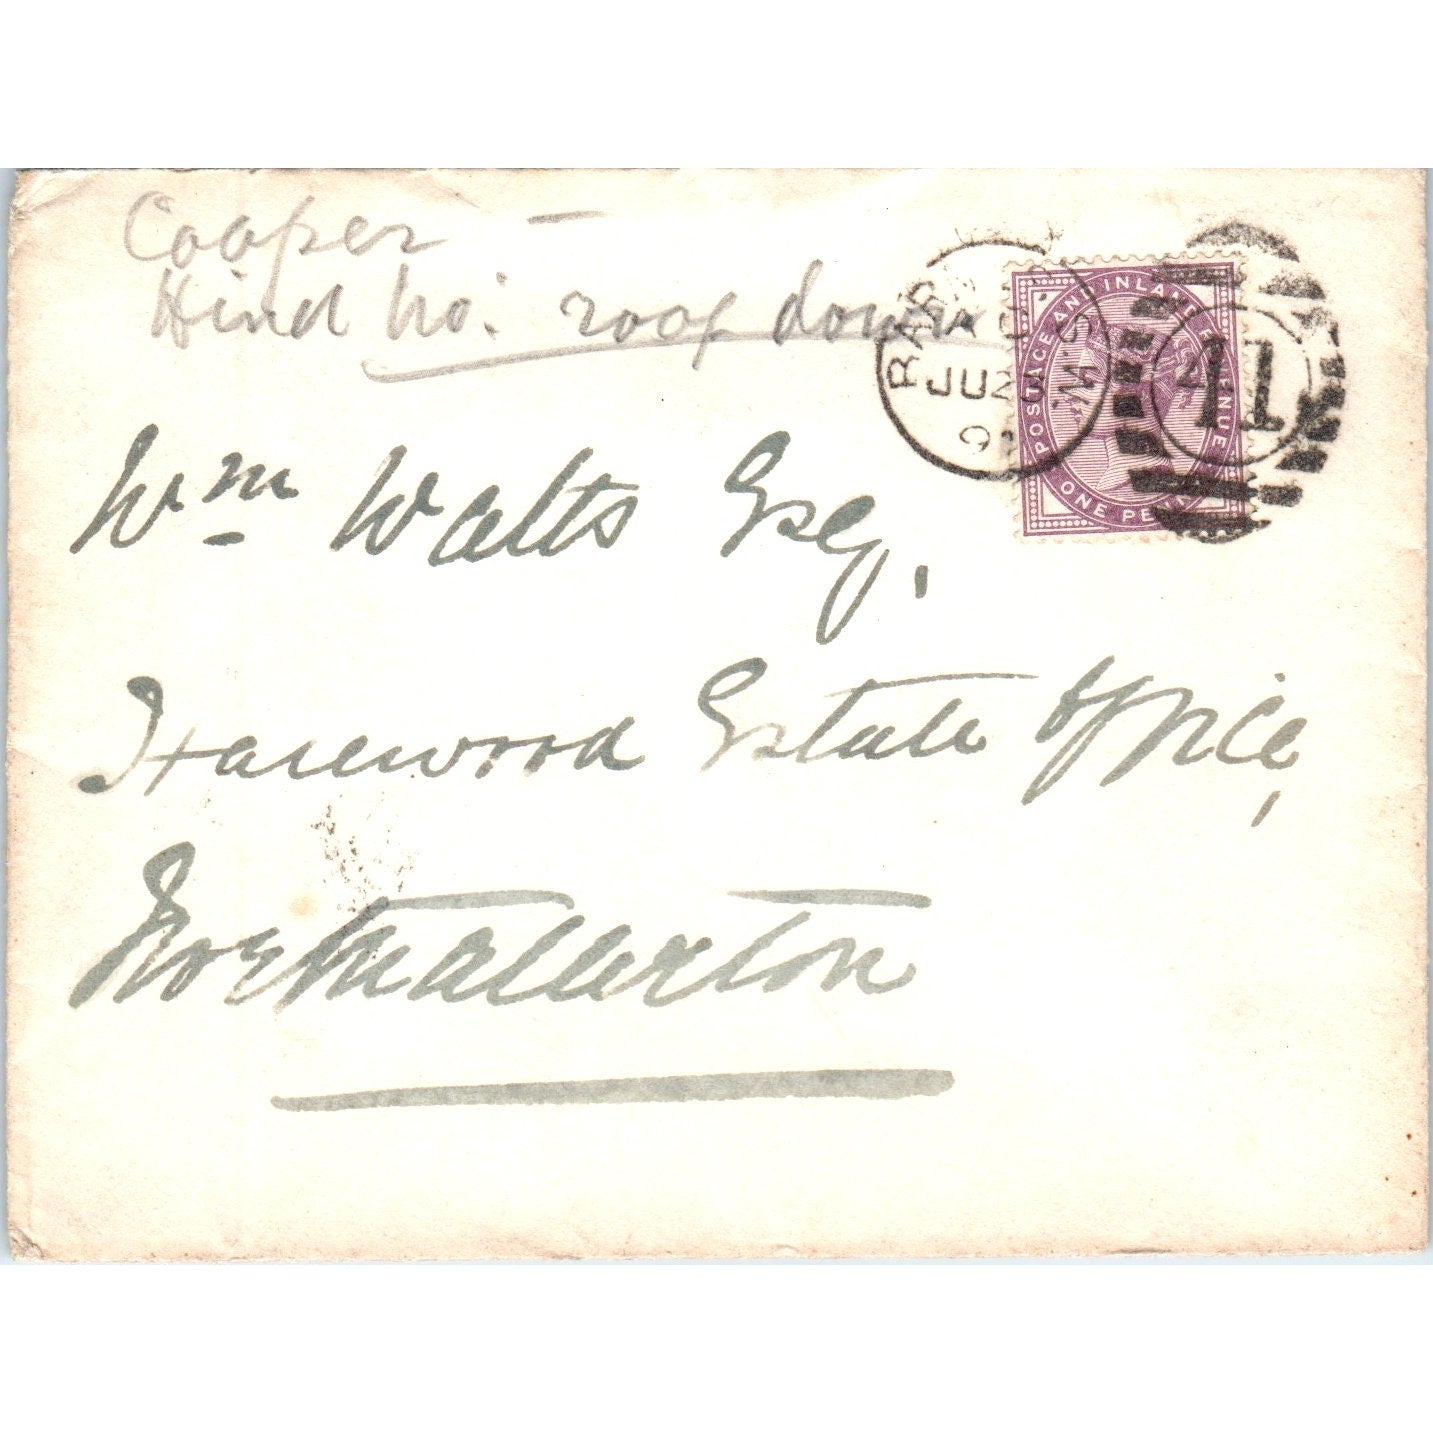 Cooper —
Hind ho: roof down
POSTAGE AND INLAND REVENUE
ONE PENNY
JUN
411
Wm Watts Esq,
Harewood Estate Office,
Northallerton